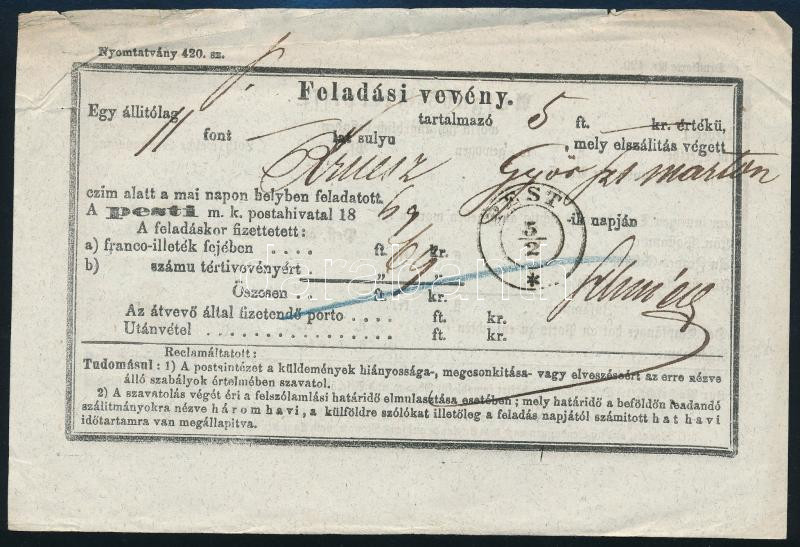 Nyomtatvány 420. sz.
Feladási vevény.
Egy állitólag tartalmazó 5 ft. kr. értékü,
11 font lat sulyu , mely elszálitás végett
Győr sz marton
czim alatt a mai napon helyben feladatott.
A pesti m. k. postahivatal 18 69 -ik napján
PEST
5/2
*
A feladáskor fizettetett:
a) franco-illeték fejében .... ft. 69 kr.
b) számu tértivevényért . „ „
Öszosen .... ft. kr.
Az átvevő által fizetendő porto .... ft. kr.
Utánvétel .... ft. kr.
Reclamáltatott:
Tudomásul: 1) A postaintézet a küldemények hiányossága-, megcsonkitása- vagy elveszéseért az erre nézve
álló szabályok értelmében szavatol.
2) A szavatolás végét éri a felszólamlási határidő elmulasztása esetében; mely határidő a beföldön feladandó
szálitmányokra nézve három havi, a külföldre szólókat illetőleg a feladás napjától számított hat havi
időtartamra van megállapitva.